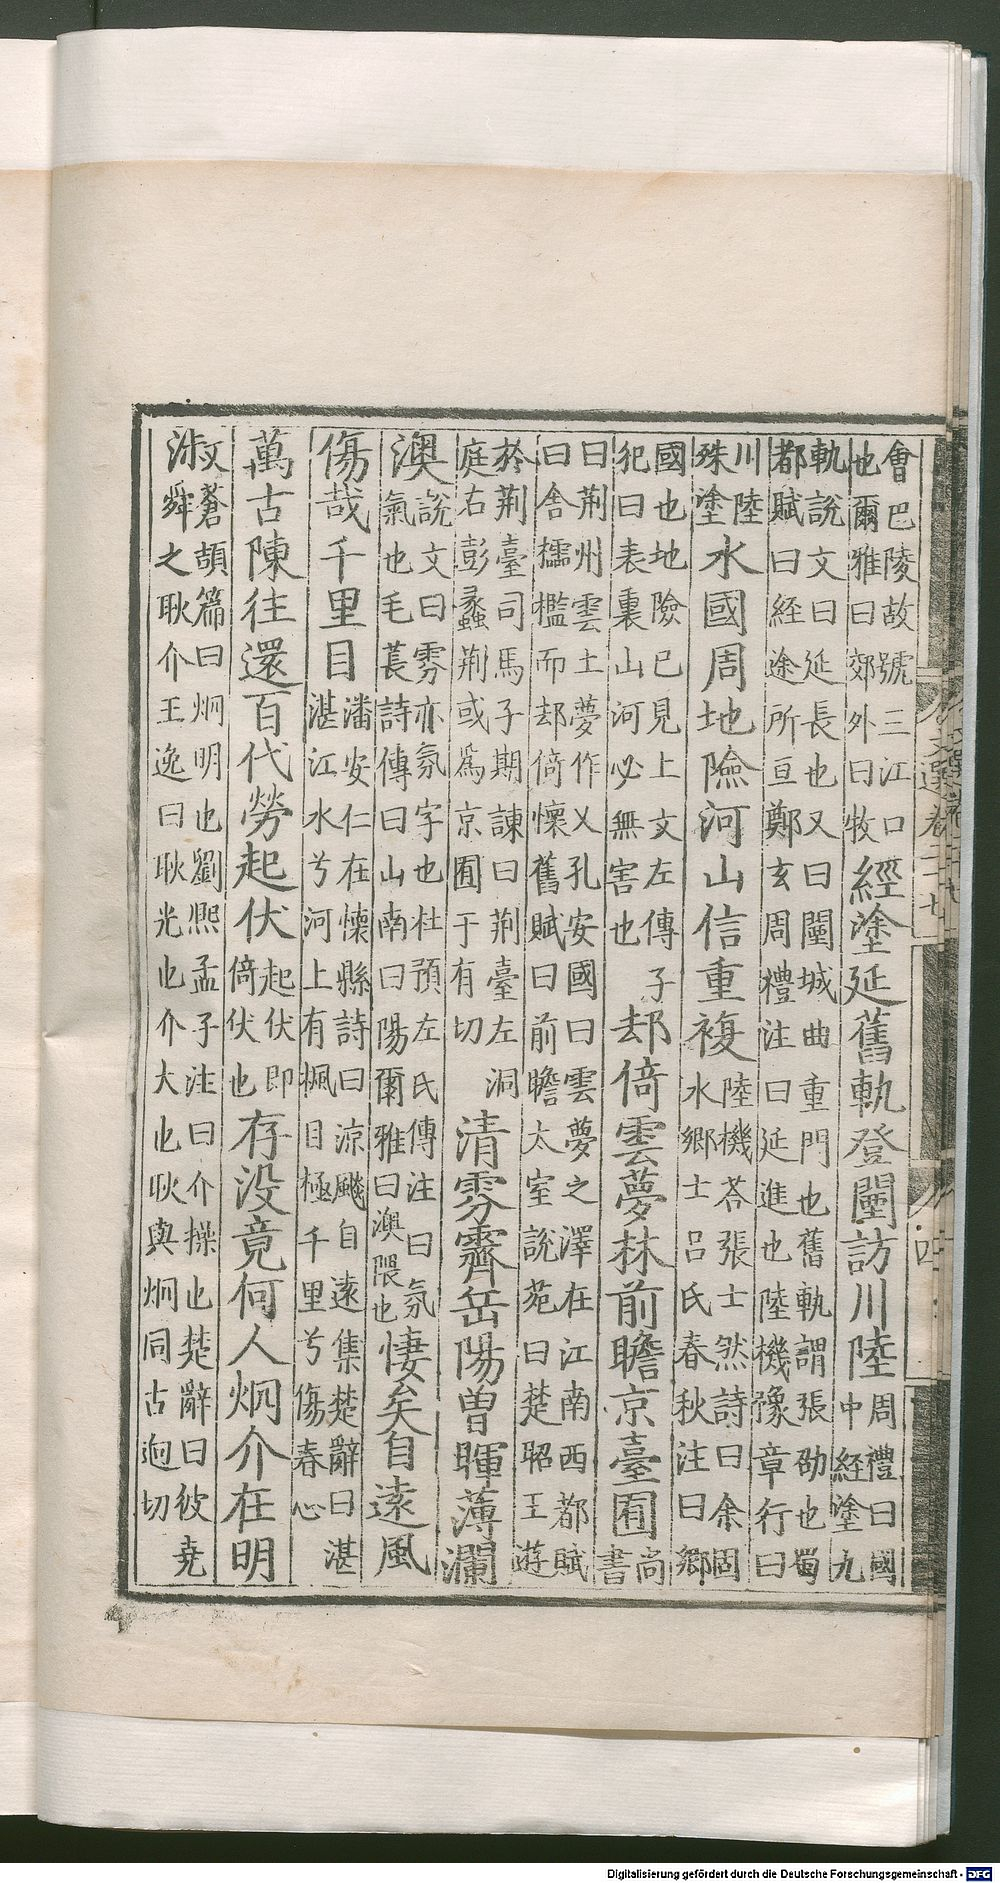 會巴陵故號三江口也爾雅曰郊外曰牧經塗延舊軌登闉訪川陸周禮曰國中経塗九
軌說文曰延長也又曰闉城曲重門也舊軌謂張劭也蜀都賦曰経途所亘鄭玄周禮注曰延進也陸機豫章行曰
川陸殊塗水國周地險河山信重複陸機荅張士然詩曰余固水鄉士呂氏春秋注曰鄉
國也地險已見上文左傳子犯曰表裏山河必無害也却倚雲夢林前瞻京臺囿尚書
曰荆州雲土夢作乂孔安國曰雲夢之澤在江南西都賦曰舎櫺檻而却倚懷舊賦曰前瞻太室說苑曰楚昭王遊
於荆臺司馬子期諫曰荆臺左洞庭右彭蠡荆或為京囿于有切清雰霽岳陽曾暉薄瀾
澳說文曰雰亦氛字也杜預左氏傳注曰氛氣也毛萇詩傳曰山南曰陽爾雅曰澳隈也悽矣自遠風
傷哉千里目潘安仁在懷縣詩曰涼飈自遠集楚辭曰湛湛江水兮河上有楓目極千里兮傷春心
萬古陳往還百代勞起伏起伏即倚伏也存没竟何人炯介在明
淑蒼頡篇曰炯明也劉熈孟子注曰介操也楚辭曰彼堯舜之耿介王逸曰耿光也介大也耿與炯同古逈切
文選卷二十七
四
Digitalisierung gefördert durch die Deutsche Forschungsgemeinschaft - DFG